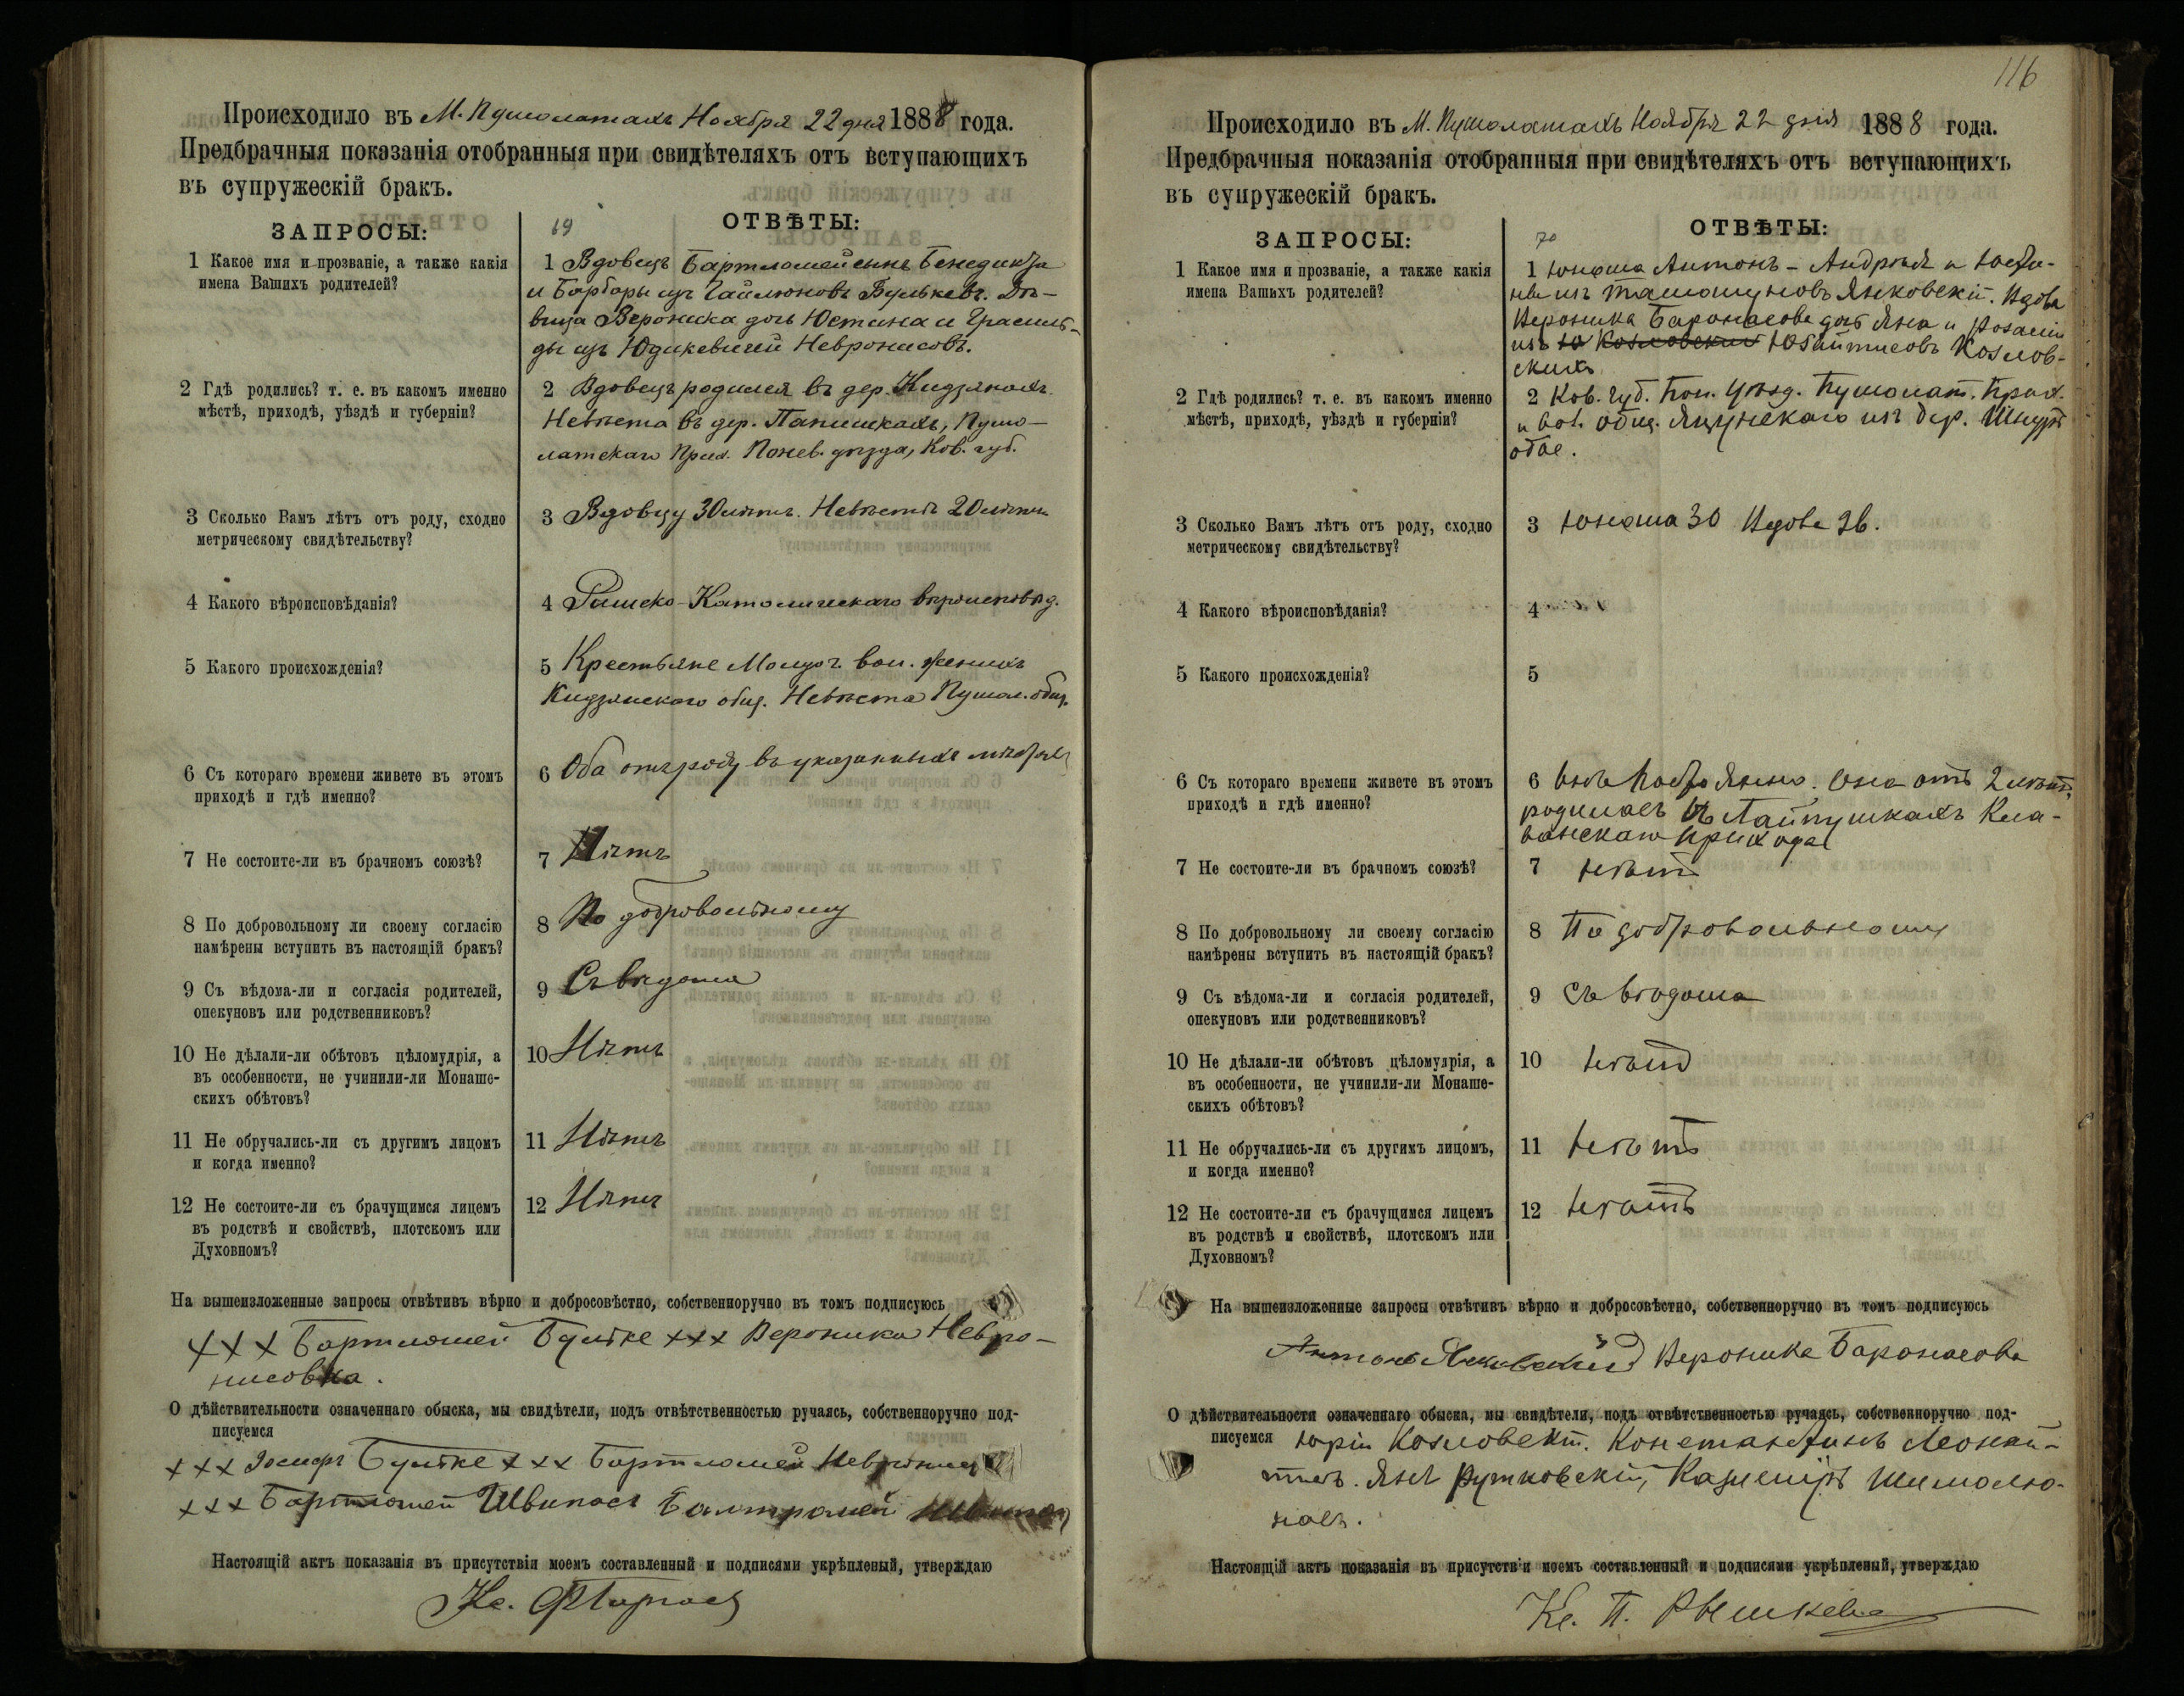 Происходило въ М. Пушолатахъ Ноября 22 дня 1888 года.
Предбрачныя показанія отобранныя при свидѣтеляхъ отъ вступающихъ
въ супружескій бракъ.
ЗАПРОСЫ:
69
ОТВѢТЫ:
1 Какое имя и прозваніе, а также какія
имена Вашихъ родителей?
1 Вдовецъ Бартломей сынъ Бенедикта
и Барбары изъ Гайлюновъ Дѣ-
вица Вероника дочь Юстина и
ды изъ Юдикевичей Невронисовъ.
2 Гдѣ родились? т. е. въ какомъ именно
мѣстѣ, приходѣ, уѣздѣ и губерніи?
2 Вдовецъ родился въ дер. Кидзянахъ
Невѣста въ дер. Пушо-
латскаго Прих. Понев. уѣзда, Ков. губ.
3 Сколько Вамъ лѣтъ отъ роду, сходно
метрическому свидѣтельству?
3 Вдовцу 30 лѣтъ. Невѣстѣ 20 лѣтъ
4 Какого вѣроисповѣданія?
4 Римско-Католическаго вѣроисповѣд.
5 Какого происхожденія?
5 Крестьяне вол. Женихъ
Кидзянскаго общ. Невѣста Пушол. общ.
6 Съ котораго времени живете въ этомъ
приходѣ и гдѣ именно?
6 Оба отъ роду въ указанныхъ мѣстахъ
7 Не состоите-ли въ брачномъ союзѣ?
7 Нѣтъ
8 По добровольному ли своему согласію
намѣрены вступить въ настоящій бракъ?
8 По добровольному
9 Съ вѣдома-ли и согласія родителей,
опекуновъ или родственниковъ?
9 Съ вѣдома
10 Не дѣлали-ли обѣтовъ цѣломудрія, а
въ особенности, не учинили-ли Монаше-
скихъ обѣтовъ?
10 Нѣтъ
11 Не обручались-ли съ другимъ лицомъ
и когда именно?
11 Нѣтъ
12 Не состоите-ли съ брачущимся лицемъ
въ родствѣ и свойствѣ, плотскомъ или
Духовномъ?
12 Нѣтъ
На вышеизложенные запросы отвѣтивъ вѣрно и добросовѣстно, собственноручно въ томъ подписуюсь
ххх Бартломей Бульке ххх Вероника Невро-
нисовна.
О дѣйствительности означеннаго обыска, мы свидѣтели, подъ отвѣтственностью ручаясь, собственноручно под-
писуемся
ххх Іосифъ Бульке ххх Бартломей Невронисъ
ххх Бартломей Швипасъ Балтромей
Настоящій актъ показанія въ присутствіи моемъ составленный и подписями укрѣпленый, утверждаю
Кс.
116
Происходило въ М. Пушолатахъ Ноября 22 дня 1888 года.
Предбрачныя показанія отобранныя при свидѣтеляхъ отъ вступающихъ
въ супружескій бракъ.
ЗАПРОСЫ:
70
ОТВѢТЫ:
1 Какое имя и прозваніе, а также какія
имена Вашихъ родителей?
1 Юноша Антонъ - Андрея и Юсти-
ны изъ Янковскій. Вдова
Вероника Баронасова дочь Яна и Розаліи
изъ Козловскихъ Козлов-
скихъ
2 Гдѣ родились? т. е. въ какомъ именно
мѣстѣ, приходѣ, уѣздѣ и губерніи?
2 Ков. губ. Пон. уѣзд. Пушолат. Прих.
и вол. общ. изъ дер.
обое.
3 Сколько Вамъ лѣтъ отъ роду, сходно
метрическому свидѣтельству?
3 Юноша 30 Вдова 36.
4 Какого вѣроисповѣданія?
4
5 Какого происхожденія?
5
6 Съ котораго времени живете въ этомъ
приходѣ и гдѣ именно?
6 Онъ постоянно. Она отъ 2 лѣтъ,
родилась въ Лайпушкахъ Кла-
ванскаго прихода
7 Не состоите-ли въ брачномъ союзѣ?
7 Нѣтъ
8 По добровольному ли своему согласію
намѣрены вступить въ настоящій бракъ?
8 По добровольному
9 Съ вѣдома-ли и согласія родителей,
опекуновъ или родственниковъ?
9 Съ вѣдома
10 Не дѣлали-ли обѣтовъ цѣломудрія, а
въ особенности, не учинили-ли Монаше-
скихъ обѣтовъ?
10 Нѣтъ
11 Не обручались-ли съ другимъ лицомъ,
и когда именно?
11 Нѣтъ
12 Не состоите-ли съ брачущимся лицемъ
въ родствѣ и свойствѣ, плотскомъ или
Духовномъ?
12 Нѣтъ
На вышеизложенные запросы отвѣтивъ вѣрно и добросовѣстно, собственноручно въ томъ подписуюсь
Антонъ Янковскій Вероника Баронасова
О дѣйствительности означеннаго обыска, мы свидѣтели, подъ отвѣтственностью ручаясь, собственноручно под-
писуемся Юрій Козловскій. Константинъ Леонай-
тисъ. Янъ Рутковскій, Казимиръ Шимолю-
насъ.
Настоящій актъ показанія въ присутствіи моемъ составленный и подписями укрѣпленый, утверждаю
Кс. П.